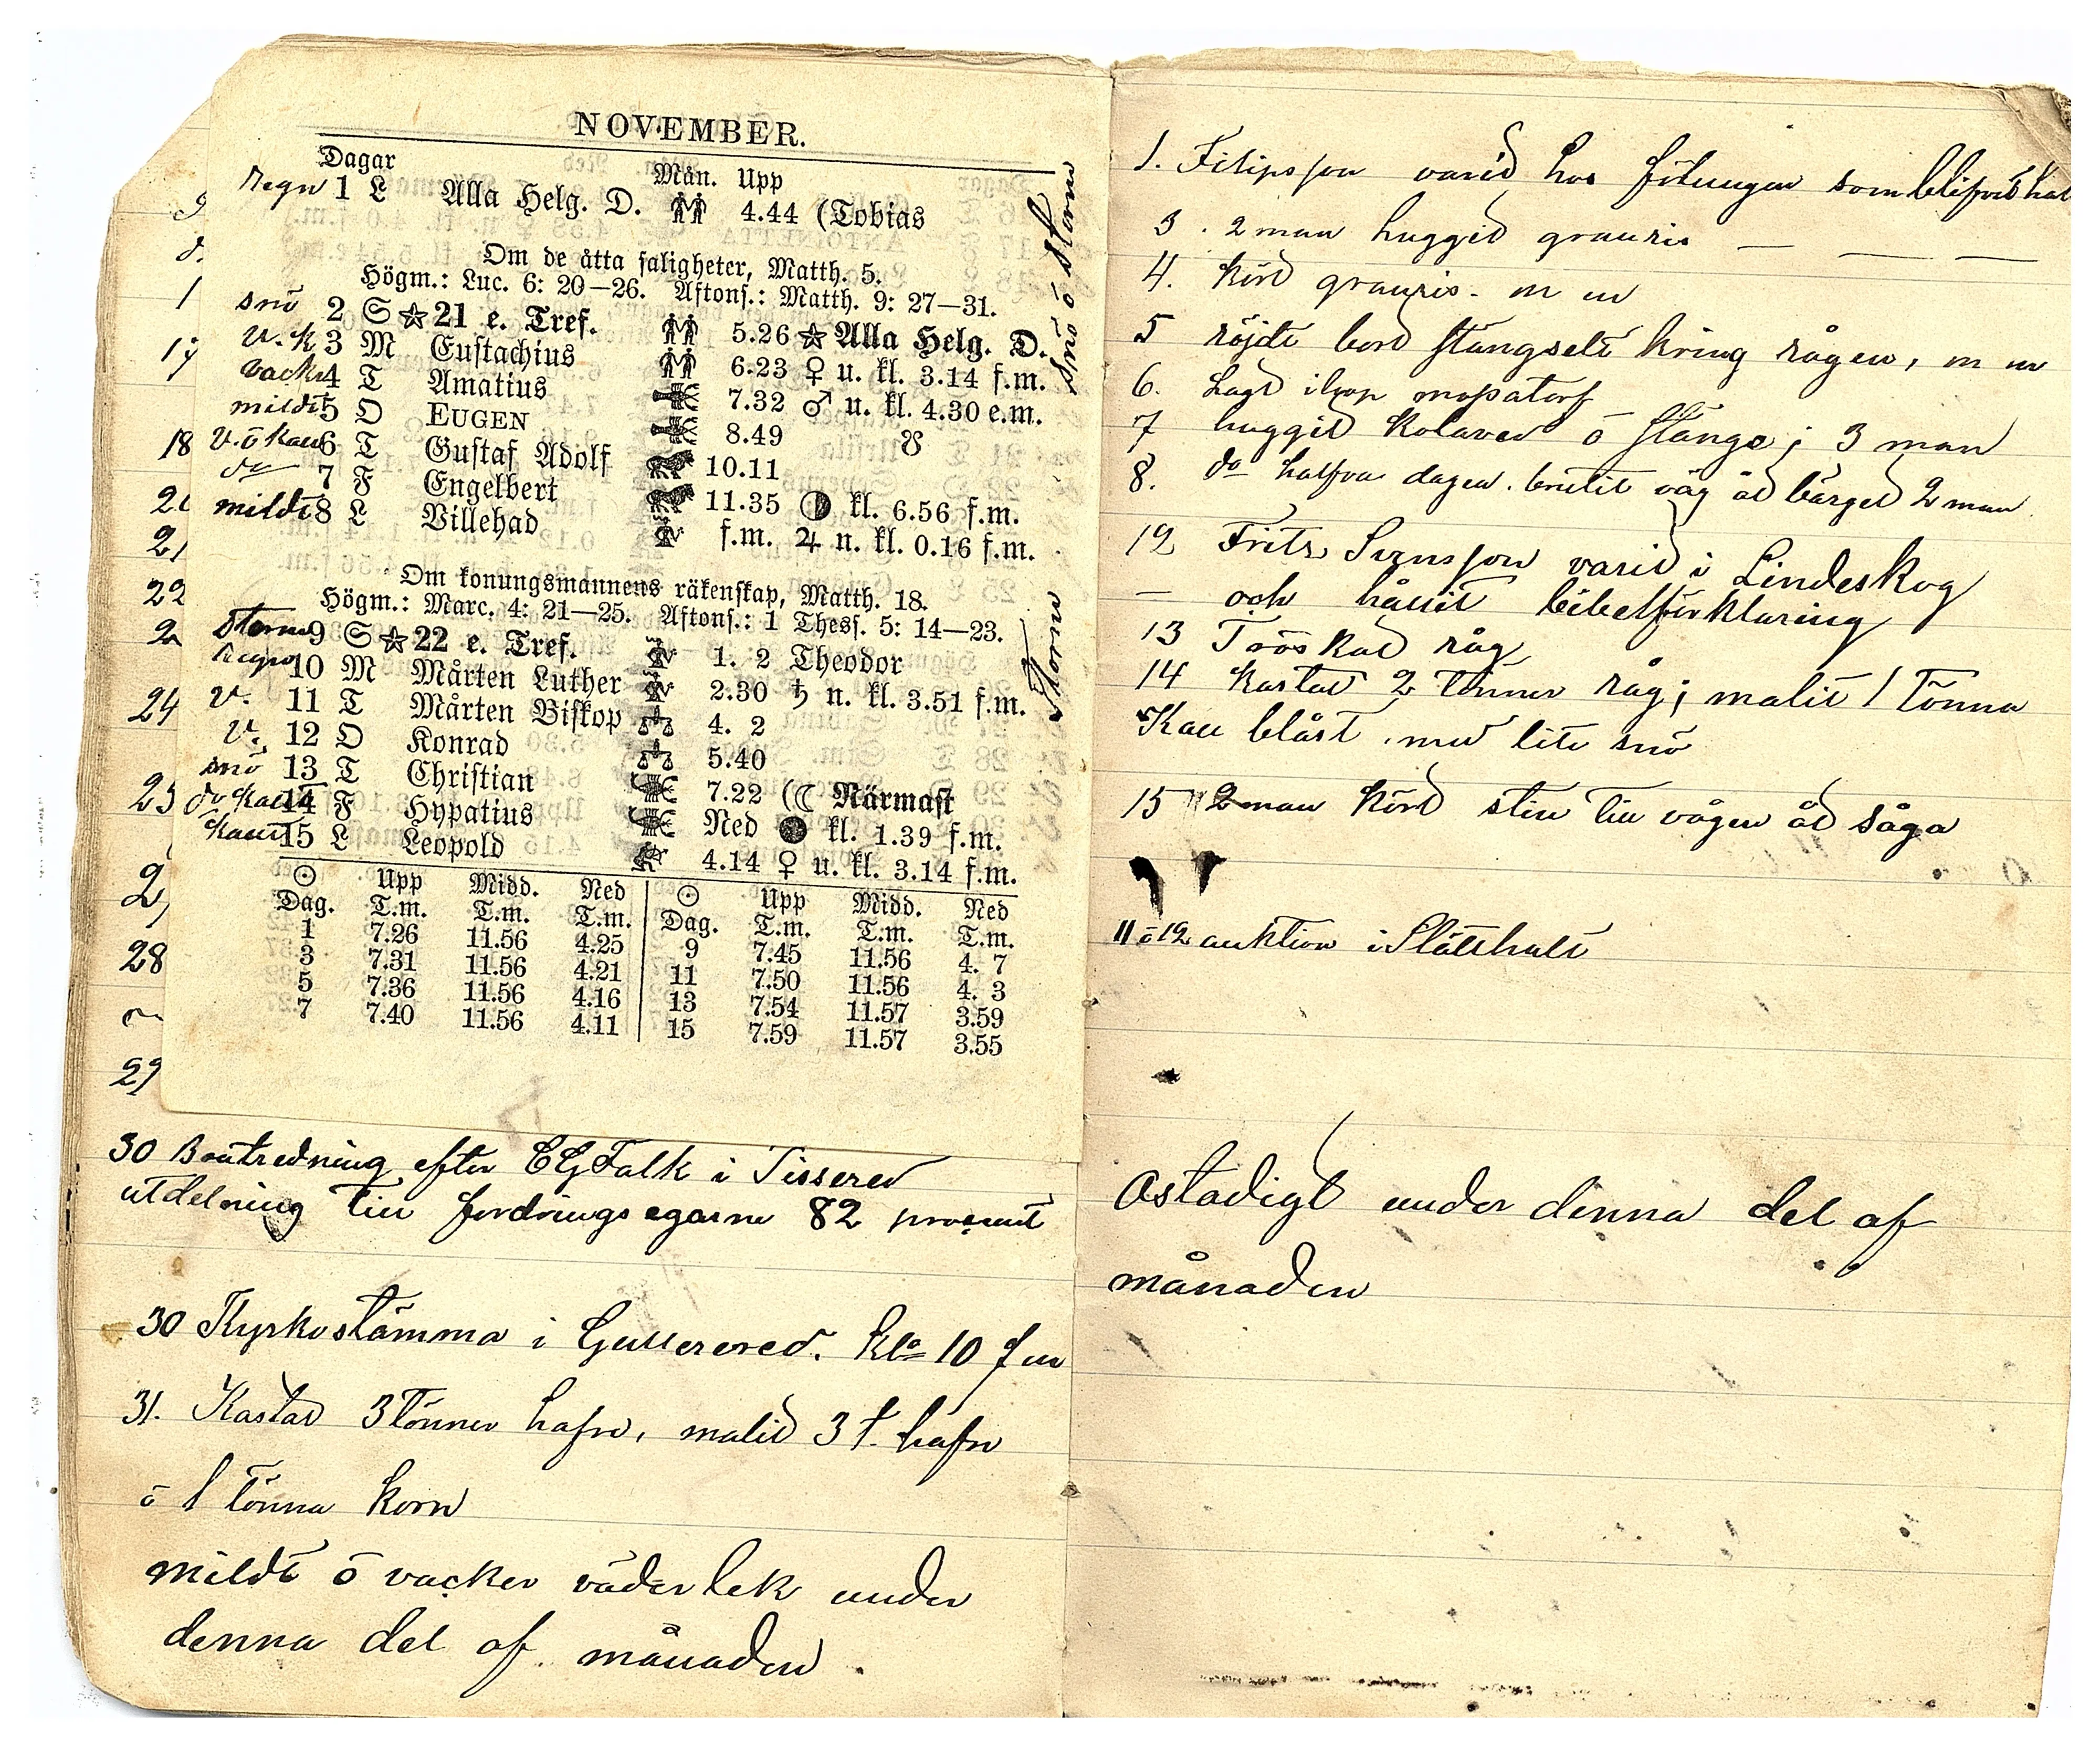 NOVEMBER.
Dagar Mån. Upp
Regn 1 L Alla Helg. D. 4.44 (Tobias
Om de åtta saligheter, Matth. 5.
Högm.: Luc. 6: 20—26. Aftons.: Matth. 9: 27—31.
snö 2 S ☆ 21 e. Tref. 5.26 ☆ Alla Helg. D.
v. k 3 M Eustachius 6.23 ♀ u. kl. 3.14 f.m.
vacke 4 T Amatius 7.32 ♂ u. kl. 4.30 e.m.
mildt 5 O EUGEN 8.49 ☋
v. ö kall 6 T Gustaf Adolf 10.11
do 7 F Engelbert 11.35 ◑ kl. 6.56 f.m.
mildt 8 L Villehad f.m. ♃ n. kl. 0.16 f.m.
snö ö storm
Om konungsmannens räkenskap, Matth. 18.
Högm.: Marc. 4: 21—25. Aftons.: 1 Thess. 5: 14—23.
storm 9 S ☆ 22 e. Tref. 1. 2 Theodor
Regn 10 M Mårten Luther 2.30 ♄ n. kl. 3.51 f.m.
v. 11 T Mårten Biskop 4. 2
v. 12 O Konrad 5.40
snö 13 T Christian 7.22 (☾ Närmast
do kallt 14 F Hypatius Ned ● kl. 1.39 f.m.
kallt 15 L Leopold 4.14 ♀ u. kl. 3.14 f.m.
storm
☉ Upp Midd. Ned ☉ Upp Midd. Ned
Dag. T.m. T.m. T.m. Dag. T.m. T.m. T.m.
1 7.26 11.56 4.25 9 7.45 11.56 4. 7
3 7.31 11.56 4.21 11 7.50 11.56 4. 3
5 7.36 11.56 4.16 13 7.54 11.57 3.59
7 7.40 11.56 4.11 15 7.59 11.57 3.55
18
21
22
24
28
29
30 Boutredning efter CG Falk i Tissered
utdelning till fordringsegarne 82 procent
30 Kyrkostämma i Gullered. klo 10 fm
31. Kastad 3 tönner hafre, malid 3 t. hafre
ö 1 tönna korn
mildt ö vacker väderlek under
denna del af månaden.
1. Filipsson varid hos som blifvid
3. 2 man huggid granris — — —
4. Körd granris. m m
5 röjdt bord stängselt kring rågen, m m
6. Lagt ihop mossatorf
7 huggid kolaved ö stänge; 3 man
8. do halfva dagen. brutit väg åd bärged 2 man
12 Fritz Svensson varid i Lindeskog
— och hållit bibelförklaring
13 Tröskad råg
14 Kastad 2 tönner råg; malit 1 tönna
Kall blåst. med lite snö
15 2 man körd sten till vägen åd såga
11 ö 12 auktion i Slätthult
Ostadigt under denna del af
månaden